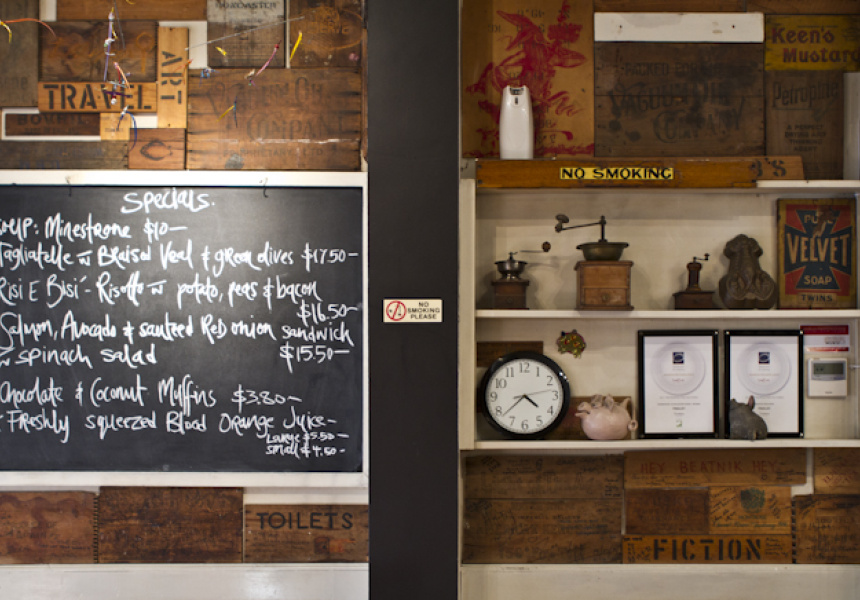 TRAVEL
ART
VACUUM OIL
COMPANY
Specials.
SOUP: Minestrone $10-
Tagliatelle w Braised Veal & green olives $17.50-
Risi E Bisi - Risotto w potato, peas & bacon
$16.50-
Salmon, Avocado & sauteed Red onion sandwich
w spinach salad $15.50-
Chocolate & Coconut Muffins $3.80-
Freshly squeezed Blood Orange Juice-
Large $5.50-
small $4.50-
TOILETS
NO
SMOKING
PLEASE
Keen's
Mustard
VACUUM OIL
COMPANY
Petroleum
A PERFECT
NO SMOKING
'S
PURE
VELVET
SOAP
TWINS
12
1
2
3
4
5
6
7
8
9
10
11
HEY BEATNIK HEY
FICTION